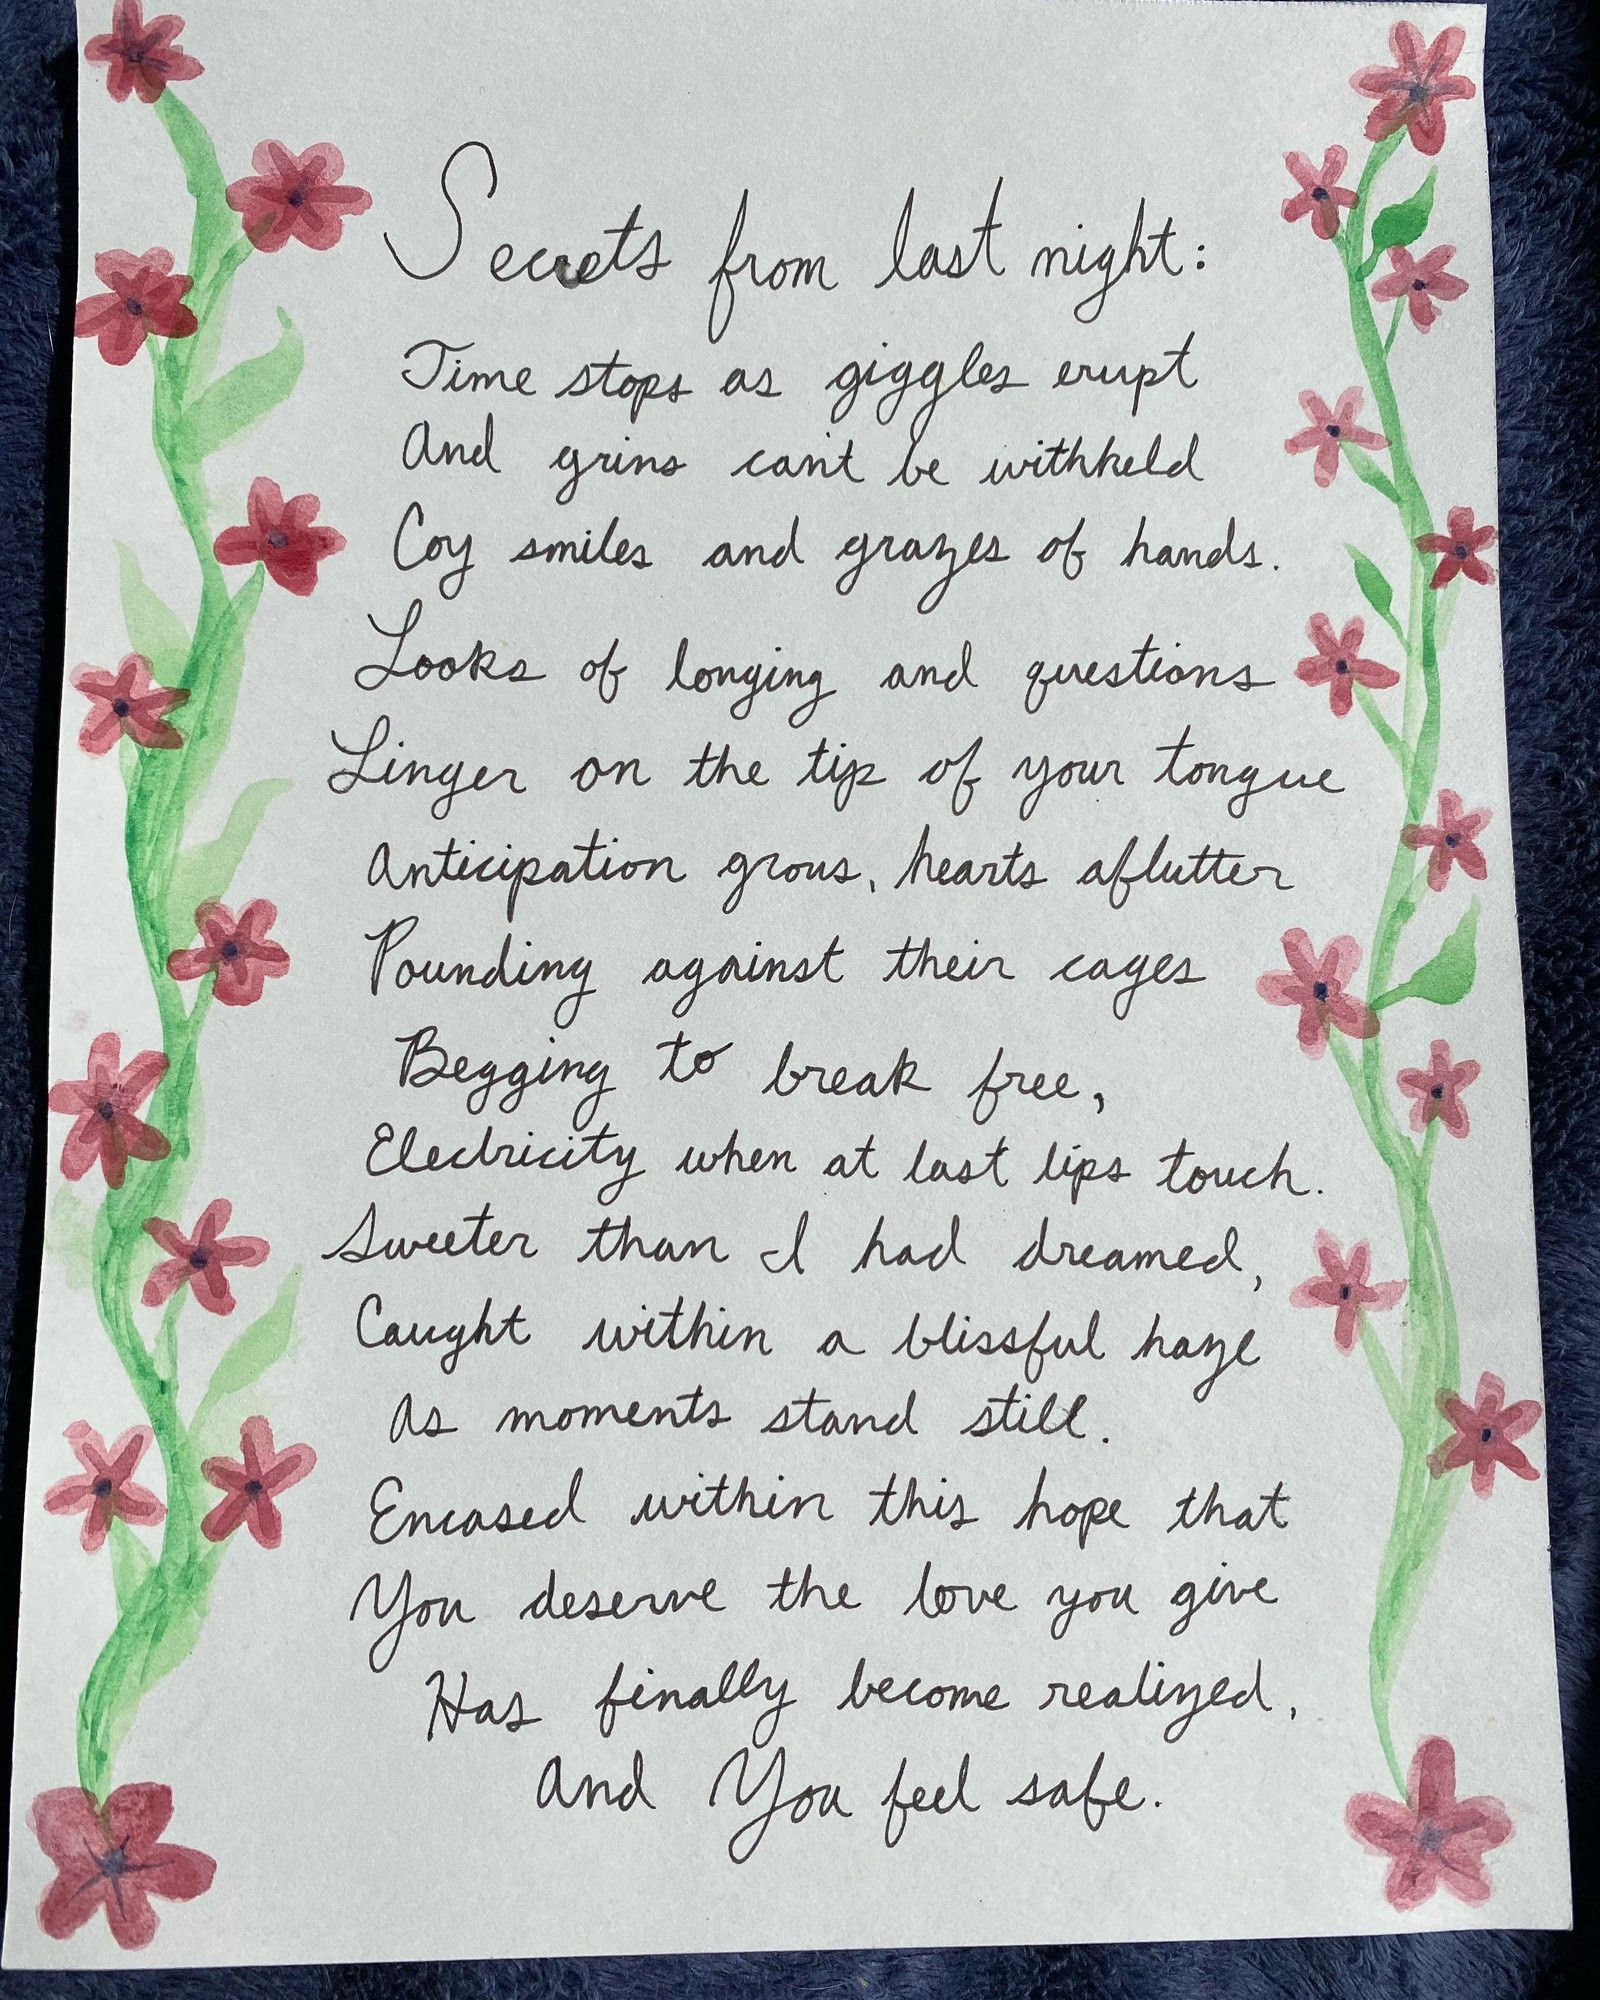 Secrets from last night:
Time stops as giggles erupt
And grins can't be withheld
Coy smiles and grazes of hands.
Looks of longing and questions
Linger on the tip of your tongue
Anticipation grows, hearts aflutter
Pounding against their cages
Begging to break free,
Electricity when at last lips touch.
Sweeter than I had dreamed,
Caught within a blissful haze
As moments stand still.
Encased within this hope that
You deserve the love you give
Has finally become realized,
And You feel safe.